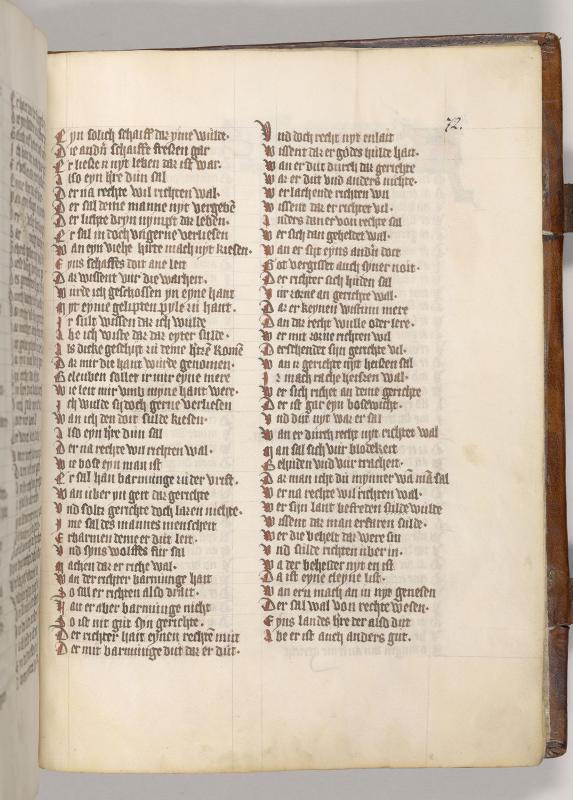 72.
Eyn solich schaiff daz yme wurde.
Die andn schaiffe fressen gar
Er liesse n nyt leben daz ist war.
Also eyn hre dun sal
Der na rechte wil richten wal.
Der sal deme manne nyt vergebe
Der lichte dryn nympt daz leben.
Er sal in doch ungerne verliesen
Wan eyn viehe hirte mach nyt kiesen.
Eyns schaffes doit ane leit
Daz wissent vur die warheit.
Wurde ich geschossen yn eyne hant
Myt eyme gelupten pyle zu hant.
Ir sult wissen daz ich wulde
Abe ich wiste daz daz eyter sulde.
Als dicke geschyt zu deme hrze komē
Daz mir die hant wurde genomen.
Geleuben sollet ir mir eyne mere
Wie leit mir umb myne hant were.
Ich wulde sy doch gerne verliesen
Wan ich den doit sulde kiesen.
Also eyn hre dun sal
Der na rechte wil richten wal.
Wie bose eyn man ist
Er sal han barmunge zu der vrist.
Wan uber yn geit daz gerichte
Und soltz gerichte doch lazen niehte.
Ime sal des mannes menscheit
Erbarmen deme er duit leit.
Und syns wolffes fur sal
Machen daz er riche wal.
Wan der richter barmunge hait
So sal er richten also drait.
Hait er aber barmunge nicht
So ist nit gut syn gerichte.
Der richter hait eynen rechtē mut
Der mit barmunge dut daz er dut.
Und doch recht nyt enlait
Wissent daz er godes hulde hait.
Wan er duit durch daz gerichte
Waz er duit und anders niehte.
Wer lachende richten wil
Wissent daz er richtet vil.
Anders dan er von rechte sal
Wer sich dan geheldet wal.
Wan er sizt eyns andn doit
Got vergisset auch syner noit.
Der richter sich huden sal
Vur zorne an gerichte wal.
Daz er keynen wistum mere
Dan daz recht wulle oder lere.
Wer mit zorne richten wil
Der schendet syn gerichte vil.
Wan iz gerichte nyt heissen sal
Iz mach rache heissen wal.
Wer sich richet an deme gerichte
Der ist gar eyn bosewicht.
Und duit nyt waz er sal
Wan er durch recht nyt richtet wal
Man sal sich vur blodekeit
Behuden und vur tracheit.
Daz man icht dū mynner wā mā sal
Wer na rechte wil richten wal.
Wer syn lant befreden sulde wulde
Wissent daz man erfaren sulde.
Wer die behelt daz were sin
Und sulde richten uber in.
Wa der behelder nyt en ist
Da ist eyne cleyne list.
Wan ern mach an in nyt genesen
Der sal wal von rechte wesen.
Eyns landes hre der also dut
Abe er ist auch anders gut.